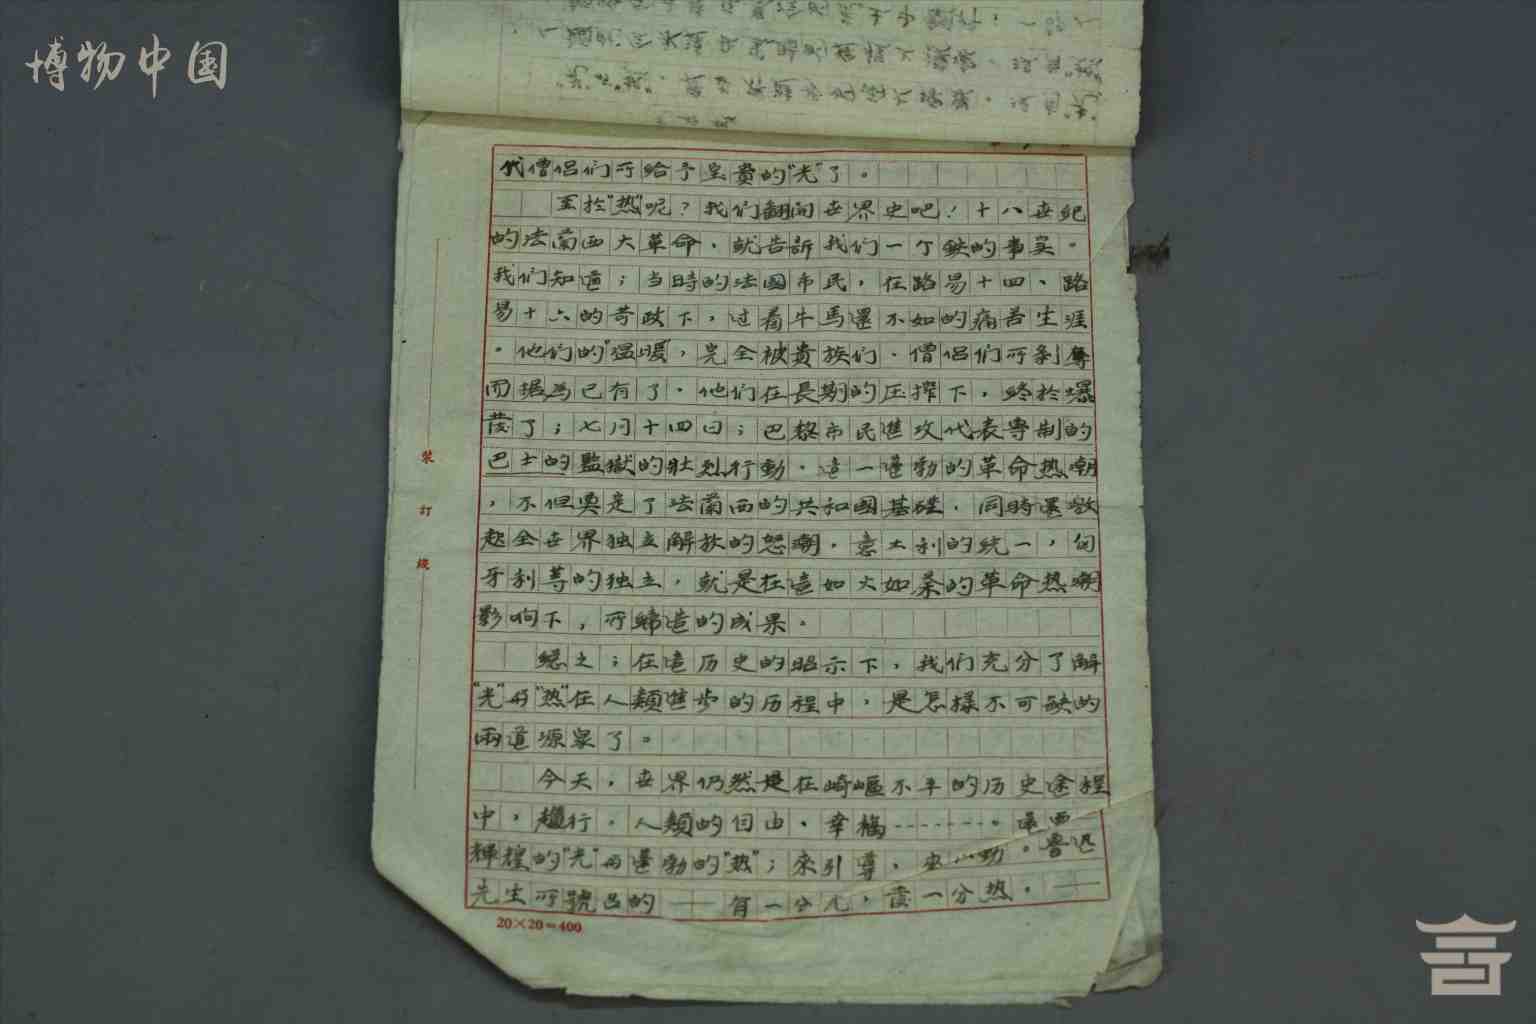 博物中国
代僧侣们所给予宝贵的"光"了。
至於"热"呢？我们翻闻世界史吧！十八世纪
的法蘭西大革命，就告訴我们一个鉄的事实。
我们知道；当時的法國市民，在路易十四、路
易十六的苛政下，过着牛馬還不如的痛苦生涯
。他们的"温暖"，完全被貴族们、僧侣们所剥奪
而据為己有了。他们在長期的压搾下，終於爆
發了；七月十四日；巴黎市民進攻代表専制的
巴士的監獄的壮烈行動。這一蓬勃的革命热潮
，不但奠定了法蘭西的共和國基礎，同時還激
起全世界独立解放的怒潮。意大利的统一，匈
牙利等的独立，就是在這如火如荼的革命热潮
影响下，所締造的成果。
總之；在這历史的昭示下，我们充分了解
"光"与"热"在人類進步的历程中，是怎樣不可缺的
兩道源泉了。
今天，世界仍然是在崎嶇不平的历史途程
中，趨行。人類的自由、幸福-------。還要
輝煌的"光"与蓬勃的"热"；來引導、 動。魯迅
先生所號召的——有一分光，發一分热。——
20×20=400
装
訂
綫